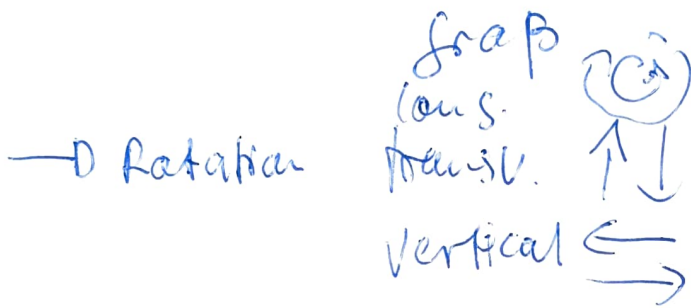 graß
long.
→ Rotation transv.
vertical